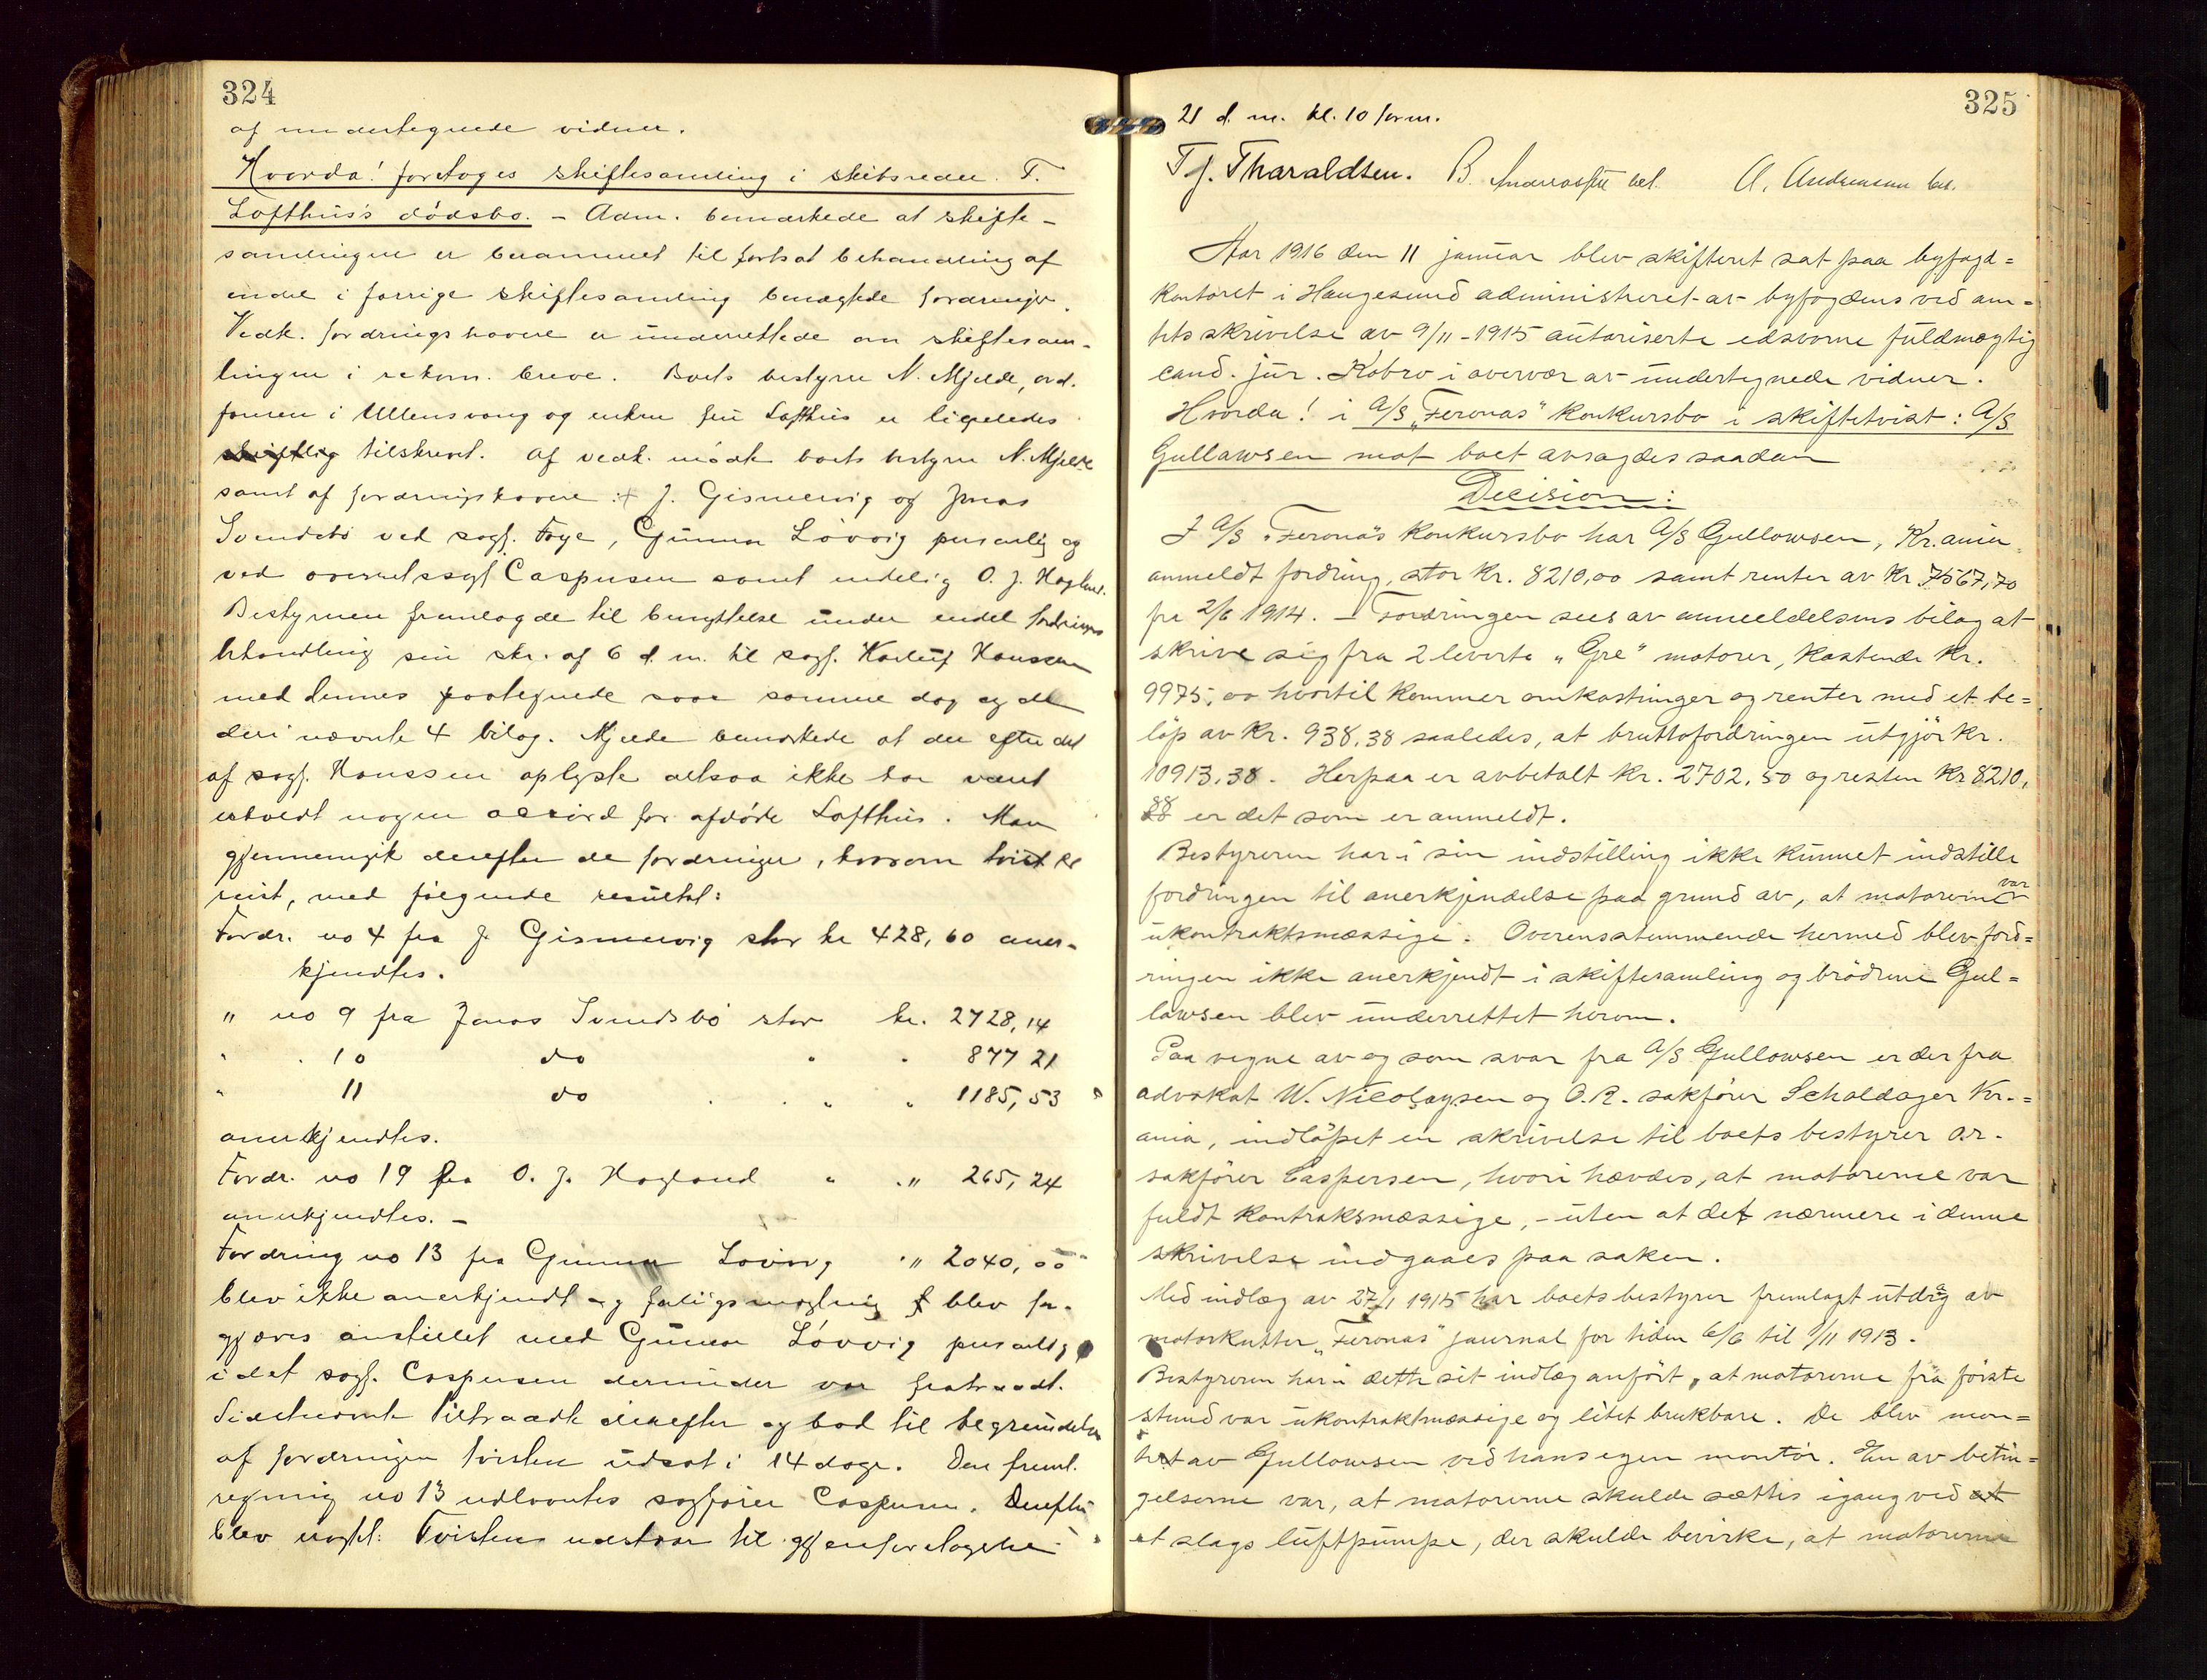 324
af undertegnede vidner.
Hvorda! foretoges skiftesamling i skibsreder T.
Lofthus's dødsbo. – Adm. bemærkede at skifte-
samlingen er berammet til fortsat behandling af
endel i forrige skiftesamling benægtede fordringer.
Vedk. fordringshavere er underrettede om skiftesam-
lingen i rekom. breve. Boets bestyrer N. Mjelde, ord.
føreren i Ullensvang og enken fru Lofthus er ligeledes
skriftlig tilskrevet. Af vedk. mødte boets bestyrer N. Mjelde
samt af fordringshavere: J. Gismervig og Jonas
Svendsbø ved sagf. Faye, Gunnar Løvvig personlig og
ved overretssagf. Caspersen samt endelig O. J. Hagland.
Bestyreren fremlagde til benyttelse under endel fordringers
behandling sin skr. af 6 d. m. til sagf. Karluf Hanssen
med dennes paategnede svar samme dag og de
deri nævnte 4 bilag. Mjelde bemærkede at der efter det
af sagf. Hanssen oplyste altsaa ikke har været
utvedt nogen accord for afdøde Lofthus. Man
gjennemgik derefter de fordringer, hvorom tvist er
reist, med følgende resultat:
Fordr. no 4 fra J. Gismervig stor kr 428,60 aner-
kjendtes.
" no 9 fra Jonas Svendsbø stor kr. 2728,14
" " 10 do " " 877 21
" 11 do " " 1185,53
anerkjendtes.
Fordr. no 19 fra O. J. Hagland " " 265,24
anerkjendtes. –
Fordring no 13 fra Gunnar Løvvig " 2040,00
blev ikke anerkjendt og forligsmægling blev for-
gjæves anstillet med Gunnar Løvvig personlig
idet sagf. Caspersen derunder var fratraadt.
Sidstnævnte tiltraadte derefter og bad til begrundelse
af fordringen tvisten udsat i 14 dage. Den freml.
regning no 13 udlaantes sagfører Caspersen. Derefter
blev vagtet: Tvisten udstaar til gjenforetagelse
325
21 d. m. kl. 10 form.
T J. Tharaldsen. B. A. Andreassen bes.
Aar 1916 den 11 januar blev skifteret sat paa byfogd=
kontoret i Haugesund administreret av byfogdens ved am=
tets skrivelse av 9/11-1915 autoriserte edsvorne fuldmægtig
cand. jur. Kobro i overvær av undertegnede vidner.
Hvorda! i A/S „Feronas" konkursbo i skiftetvist: A/S
Gullowsen mot boet avsagdes saadan
Decision:
I A/S „Feronas konkursbo har A/S Gullowsen, Kr.ania
anmeldt fordring, stor Kr. 8210,00 samt renter av Kr 7567,70
fra 2/6 1914. – Fordringen sees av anmeldelsens bilag at
skrive sig fra 2 leverte „Gre" motorer, kostende Kr.
9975,00 hvortil kommer omkostninger og renter med et be=
løp av Kr. 938,38 saaledes, at bruttofordringen utgjør Kr.
10913,38. Herpaa er avbetalt Kr. 2702,50 og resten Kr 8210,
88 er det som er anmeldt.
Bestyreren har i sin indstilling ikke kunnet indstille
fordringen til anerkjendelse paa grund av, at motorerne var
ukontraktsmæssige. Overensstemmende hermed blev ford=
ringen ikke anerkjendt i skiftesamling og brødrene Gul=
lowsen blev underrettet herom.
Paa vegne av og som svar fra A/S Gullowsen er der fra
advokat W. Nicolaysen og O.R. sakfører Scholdager Kr.=
ania, indløpet en skrivelse til boets bestyrer or.
sakfører Caspersen, hvori hævdes, at motorerne var
fuldt kontraksmæssige, – uten at det nærmere i denne
skrivelse indgaaes paa saken.
Med indlæg av 27/1 1915 har boets bestyrer fremlagt utdrag av
motorkutter „Feronas" journal for tiden 6/6 til 9/11 1913.
Bestyreren har i dette sit indlæg anført, at motorerne fra første
stund var ukontraktmæssige og litet brukbare. De blev mon=
tert av Gullowsen ved hans egen montør. En av betin=
gelserne var, at motorerne skulde sættes igang ved at
et slags luftpumpe, der skulde bevirke, at motorerne